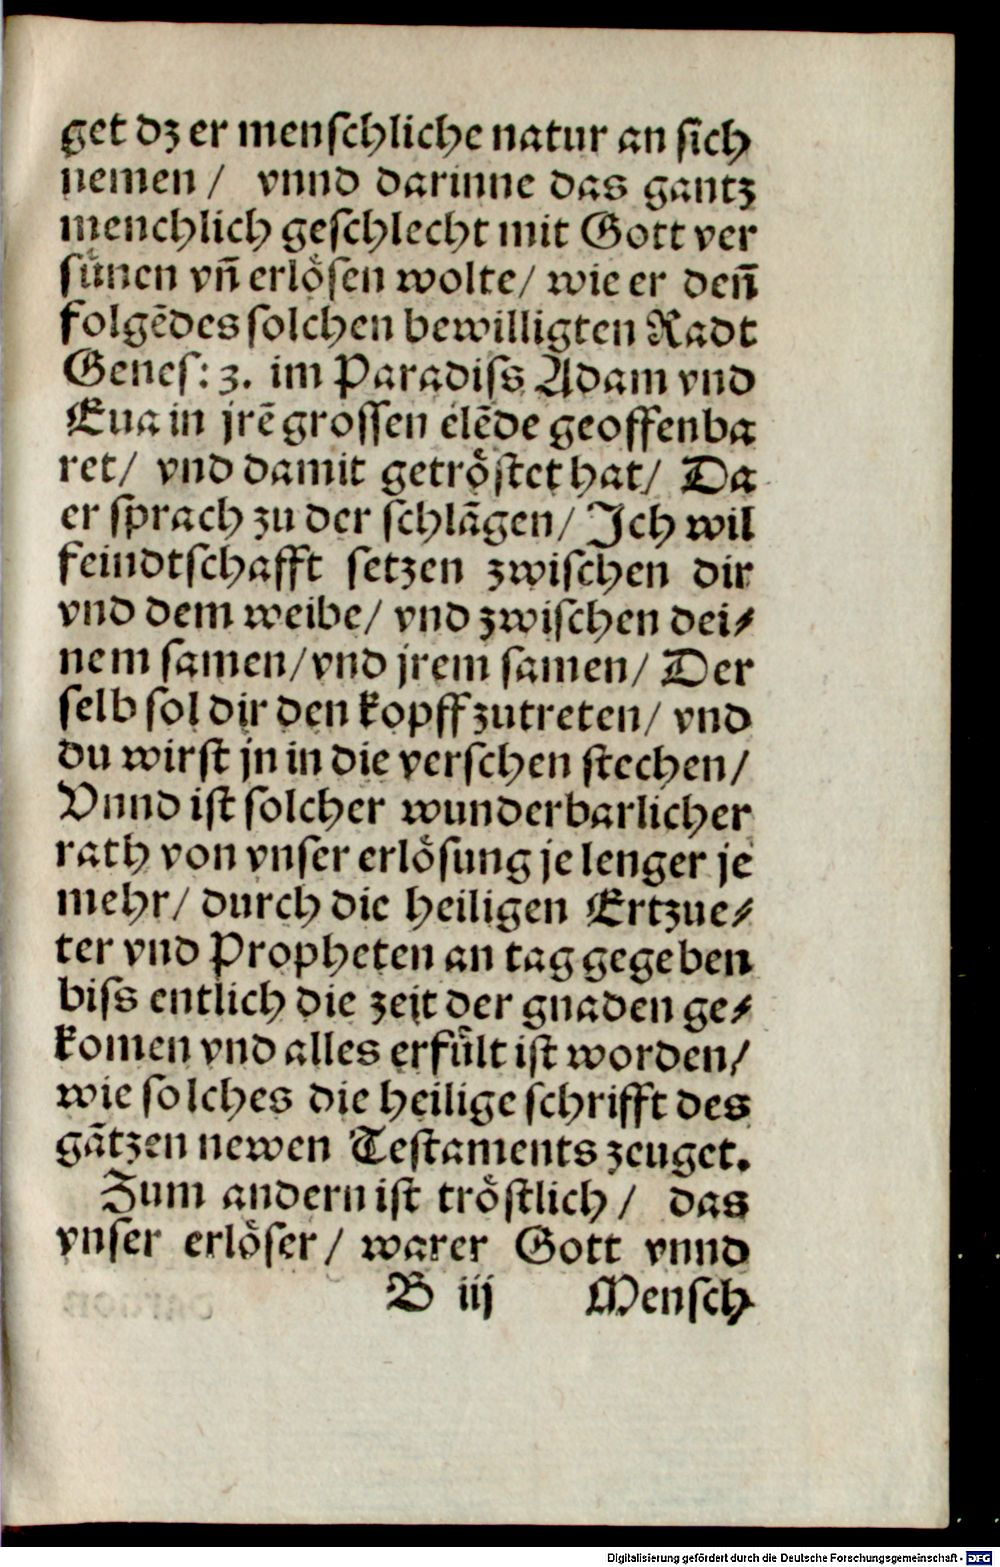 get dz er menſchliche natur an ſich
nemen / vnnd darinne das gantz
menchlich geſchlecht mit Gott ver
ſuͤnen vn̄ erloͤſen wolte/ wie er den̄
folgēdes ſolchen bewilligten Radt
Geneſ: 3. im Paradiſs Adam vnd
Eua in jrē groſſen elēde geoffenba
ret/ vnd damit getroͤſtet hat/ Da
er ſprach zu der ſchlāgen/ Ich wil
feindtſchafft ſetzen zwiſchen dir
vnd dem weibe/ vnd zwiſchen dei⸗
nem ſamen/vnd jrem ſamen/ Der
ſelb ſol dir den kopff zutreten/ vnd
du wirſt jn in die verſchen ſtechen/
Vnnd iſt ſolcher wunderbarlicher
rath von vnſer erloͤſung je lenger je
mehr/ durch die heiligen Ertzue⸗
ter vnd Propheten an tag gegeben
biſs entlich die zeit der gnaden ge⸗
komen vnd alles erfuͤlt iſt worden/
wie ſolches die heilige ſchrifft des
gātzen newen Teſtaments zeuget.
Zum andern iſt troͤſtlich / das
vnſer erloͤſer / warer Gott vnnd
B iij Menſch
Digitalisierung gefördert durch die Deutsche Forschungsgemeinschaft - DFG